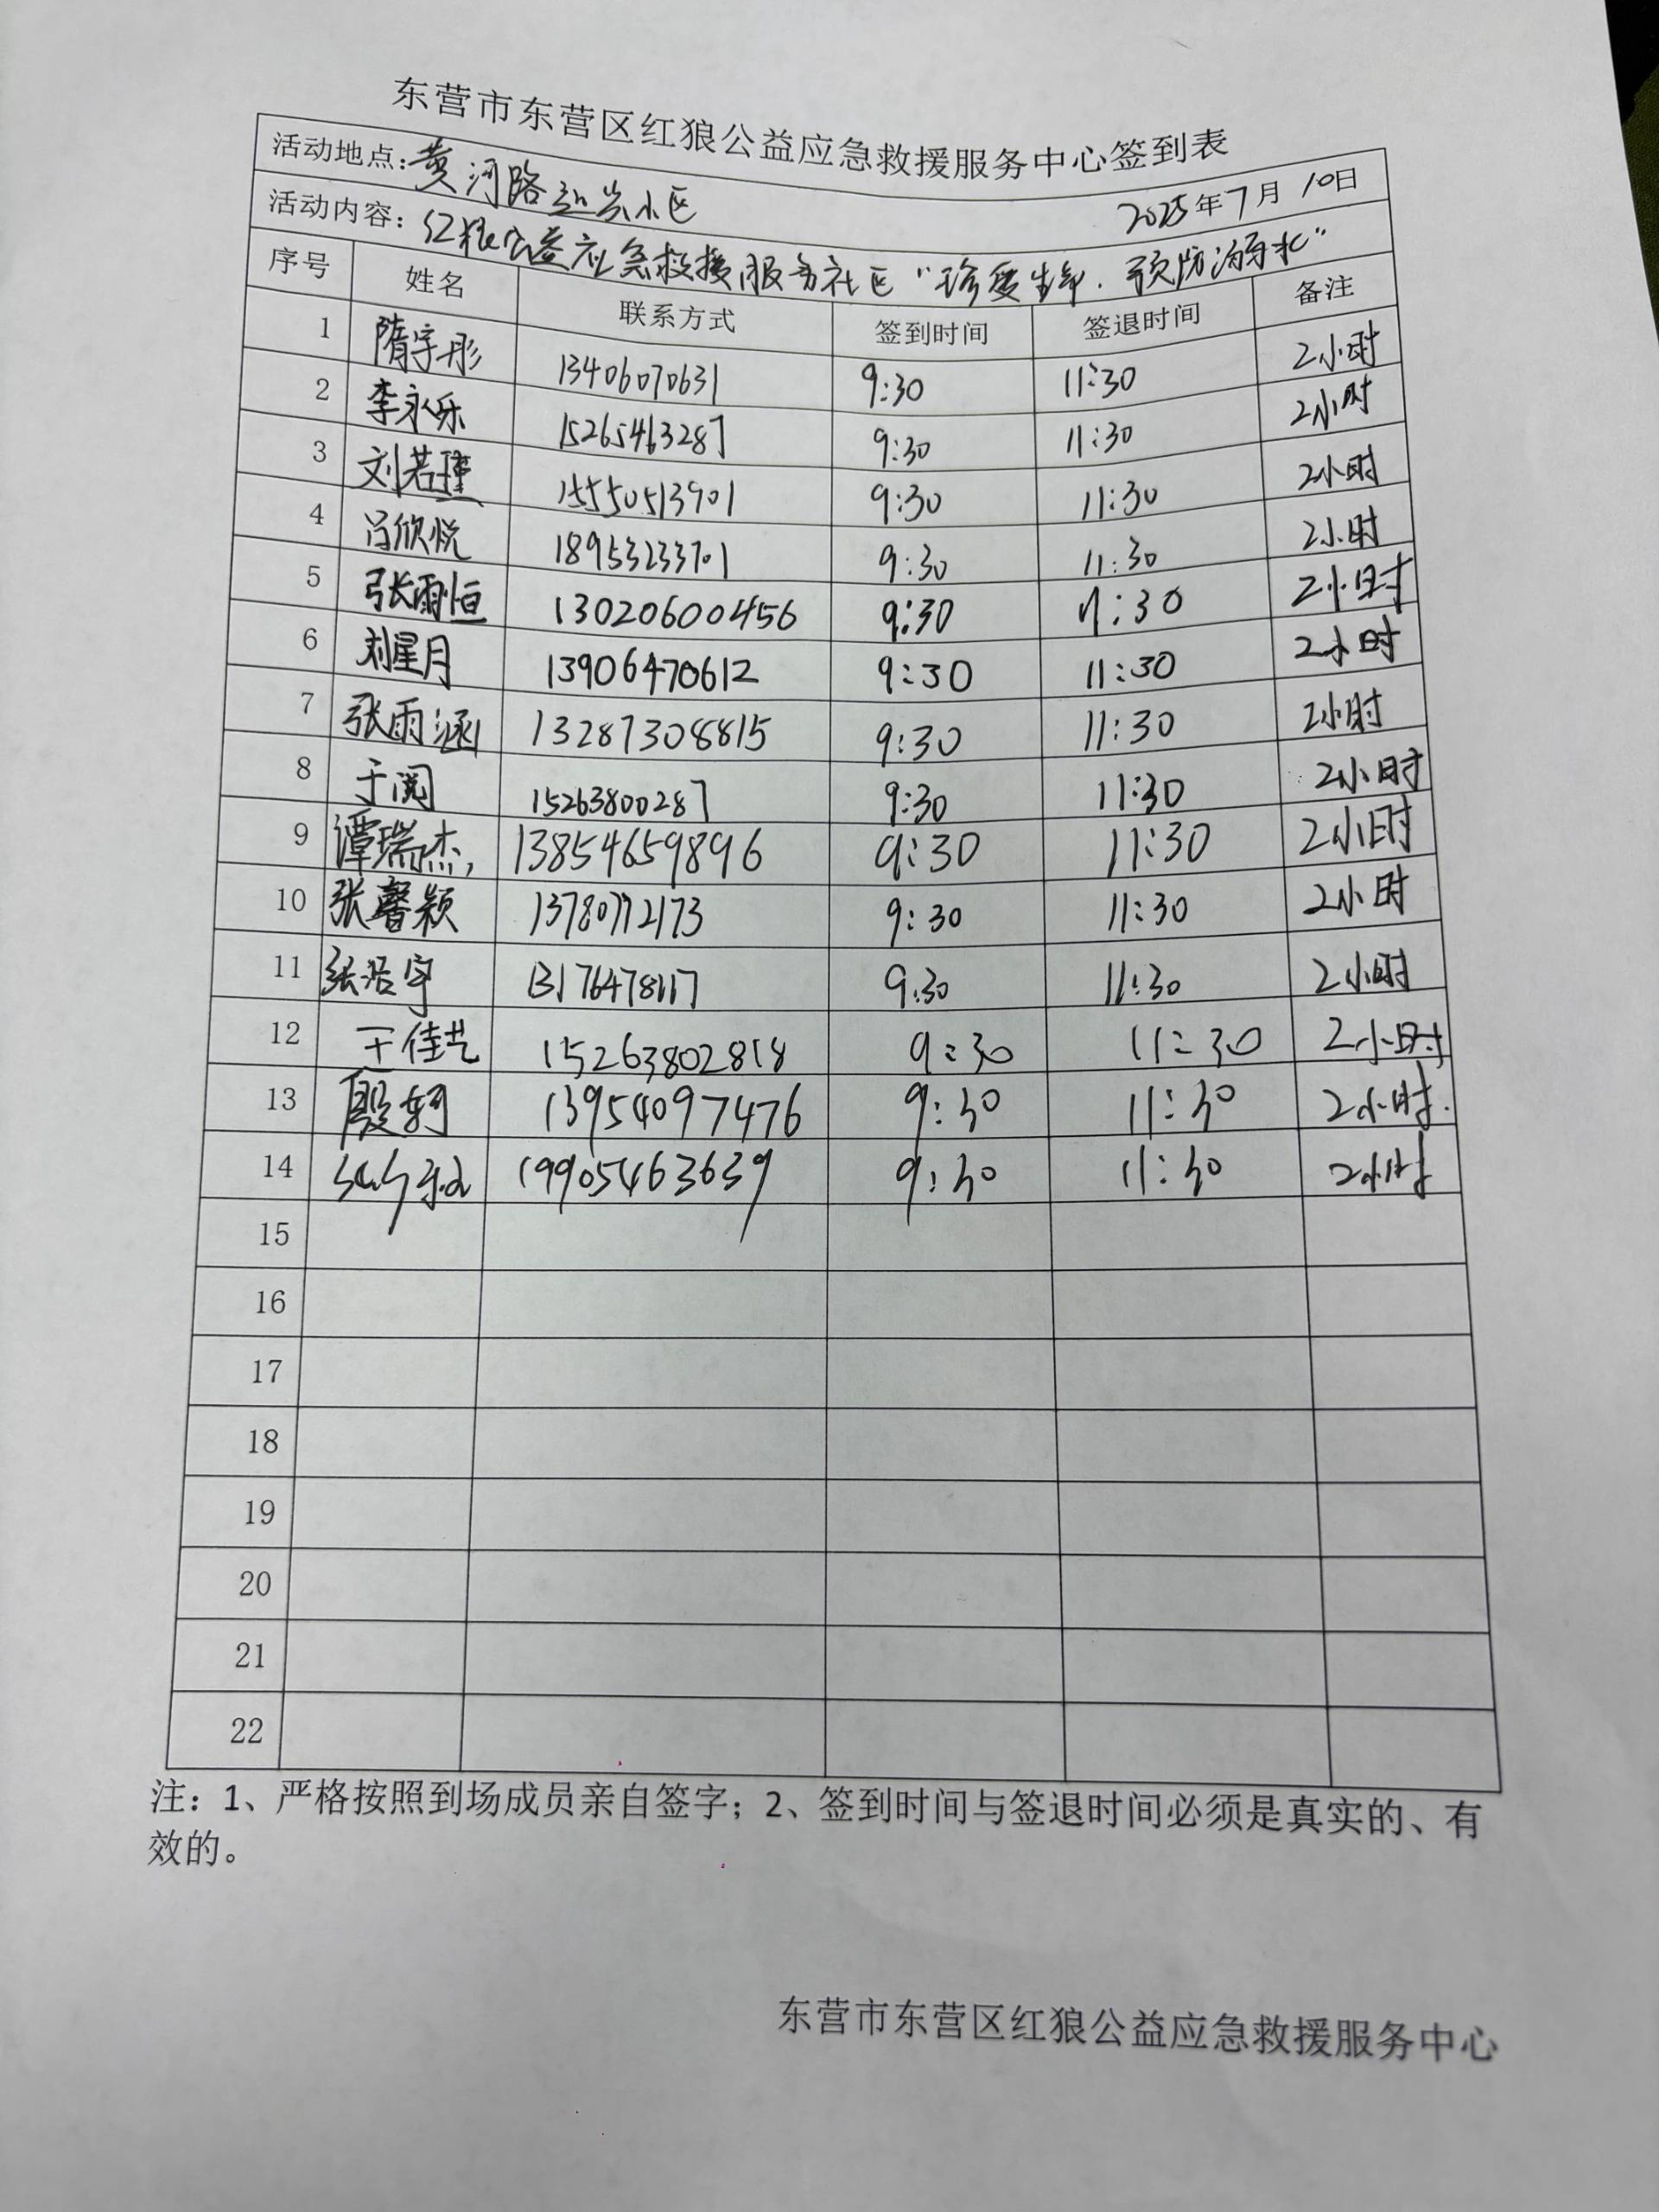 东营市东营区红狼公益应急救援服务中心签到表
活动地点：黄河路 小区 2025年7月10日
活动内容：红狼公益应急救援服务社区“珍爱生命.预防溺水”
序号 姓名 联系方式 签到时间 签退时间 备注
1 隋宇彤 13406070631 9:30 11:30 2小时
2 李永乐 15265463287 9:30 11:30 2小时
3 刘若瑾 15550513901 9:30 11:30 2小时
4 冯欣悦 18953233701 9:30 11:30 2小时
5 张雨恒 13020600456 9:30 11:30 2小时
6 刘星月 13906470612 9:30 11:30 2小时
7 张雨涵 9:30 11:30 2小时
8 于阅 15263800287 9:30 11:30 2小时
9 谭瑞杰, 13854659896 9:30 11:30 2小时
10 张馨颖 13780772173 9:30 11:30 2小时
11 张浩宇 13176478117 9:30 11:30 2小时
12 王佳艺 15263802818 9:30 11:30 2小时
13 殷 13954097476 9:30 11:30 2小时.
14 19905463639 9:30 11:30 2小时
15
16
17
18
19
20
21
22
注：1、严格按照到场成员亲自签字；2、签到时间与签退时间必须是真实的、有
效的。
东营市东营区红狼公益应急救援服务中心